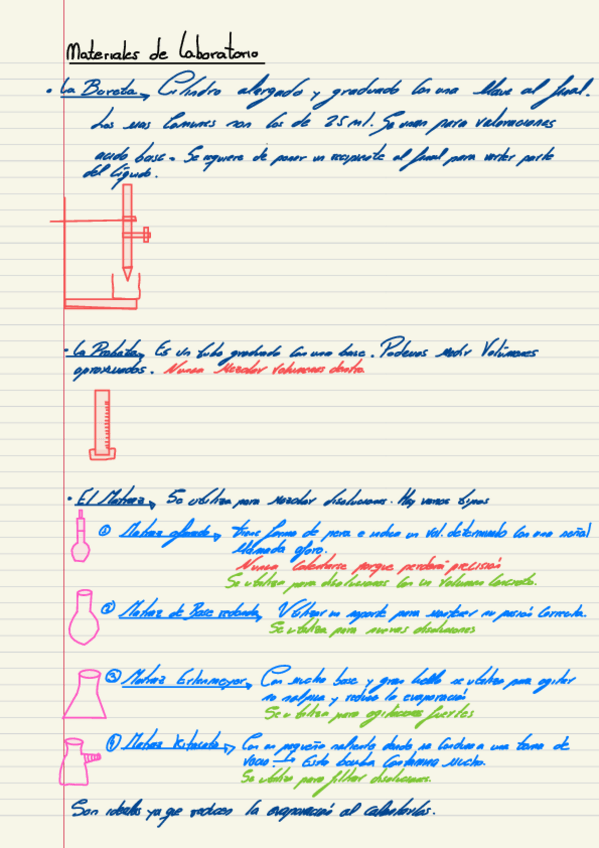 Materiales de Laboratorio
• La Bureta → Cilindro alargado y graduado con una llave al final.
Las mas comunes son las de 25 ml. Se usan para valoraciones
acido base. Se requiere de poner un recipiente al final para verter parte
del líquido.
- La Probeta → Es un tubo graduado con una base. Podemos medir Volúmenes
aproximados. Nunca Mezclar volumenes dentro
• El Matraz → Se utiliza para mezclar disoluciones. Hay varios tipos
① Matraz aforado → tiene forma de pera e indica un vol. determinado con una señal
llamada aforo.
Nunca calentarse porque perderá precisión
Se utiliza para disoluciones con un volumen concreto.
② Matraz de Base redonda → Utilizar un soporte para mantener su posición correcta.
Se utiliza para nuevas disoluciones
③ Matraz Erlenmeyer → Con mucha base y gran cuello se utiliza para agitar
no salpica y reduce la evaporación
Se utiliza para agitaciones fuertes
④ Matraz Kitasato → Con un pequeño saliente donde se conduce a una toma de
vacio → Esta bomba contamina mucho.
Se utiliza para filtrar disoluciones.
Son ideales ya que reducen la evaporación al calentarlas.